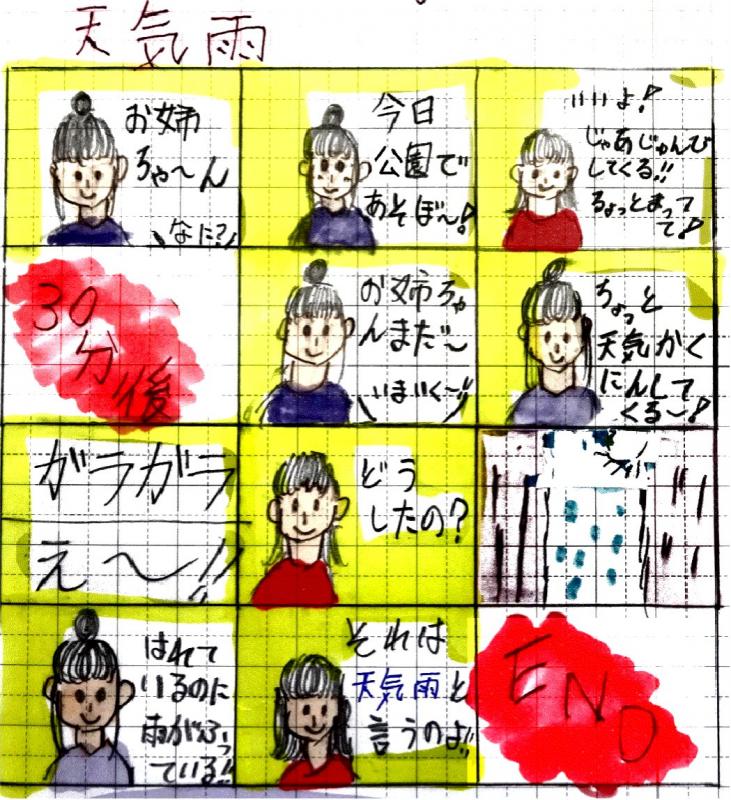 天気雨
お姉
ちゃ〜ん
なに?
今日
公園で
あそぼ〜!
いいよ!
じゃあじゅんび
してくる!!
ちょっとまって
て!
30
分
後
お姉ちゃ
んまだ〜
いまいく〜!!
ちょっと
天気かく
にんして
くる〜!
ガラガラ
え〜!!
どう
したの?
はれて
いるのに
雨がふっ
ている!!
それは
天気雨と
言うのよ!!
END